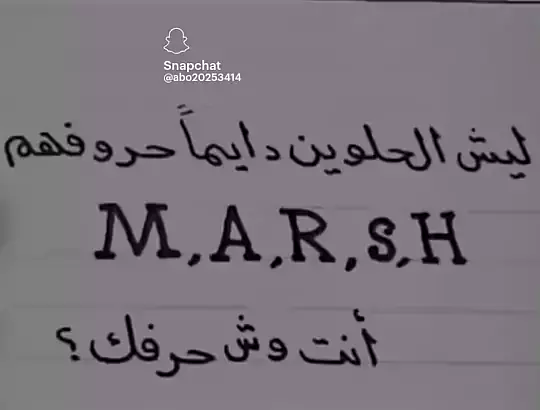 Snapchat
@abo20253414
ليش الحلوين دايماً حروفهم
M,A,R,S,H
أنت وش حرفك؟